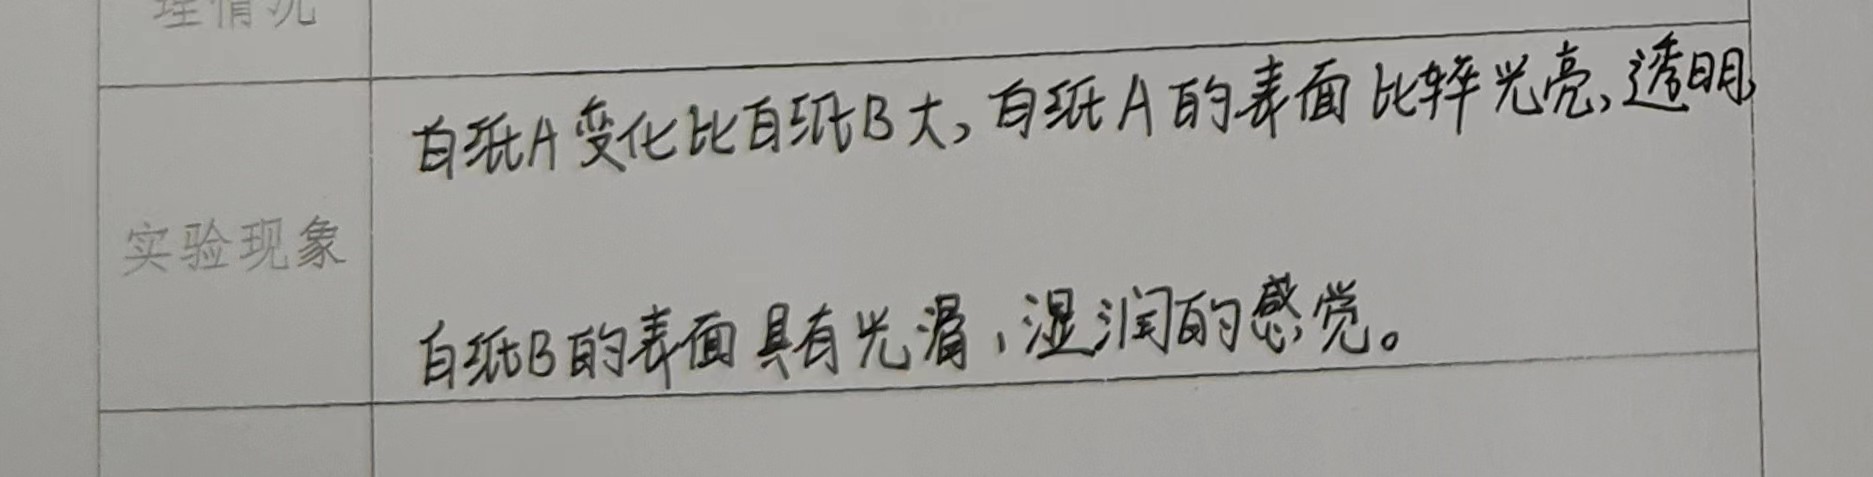 理情况
白纸A变化比白纸B大,白纸A的表面比较光亮、透明,
实验现象
白纸B的表面具有光滑、湿润的感觉。